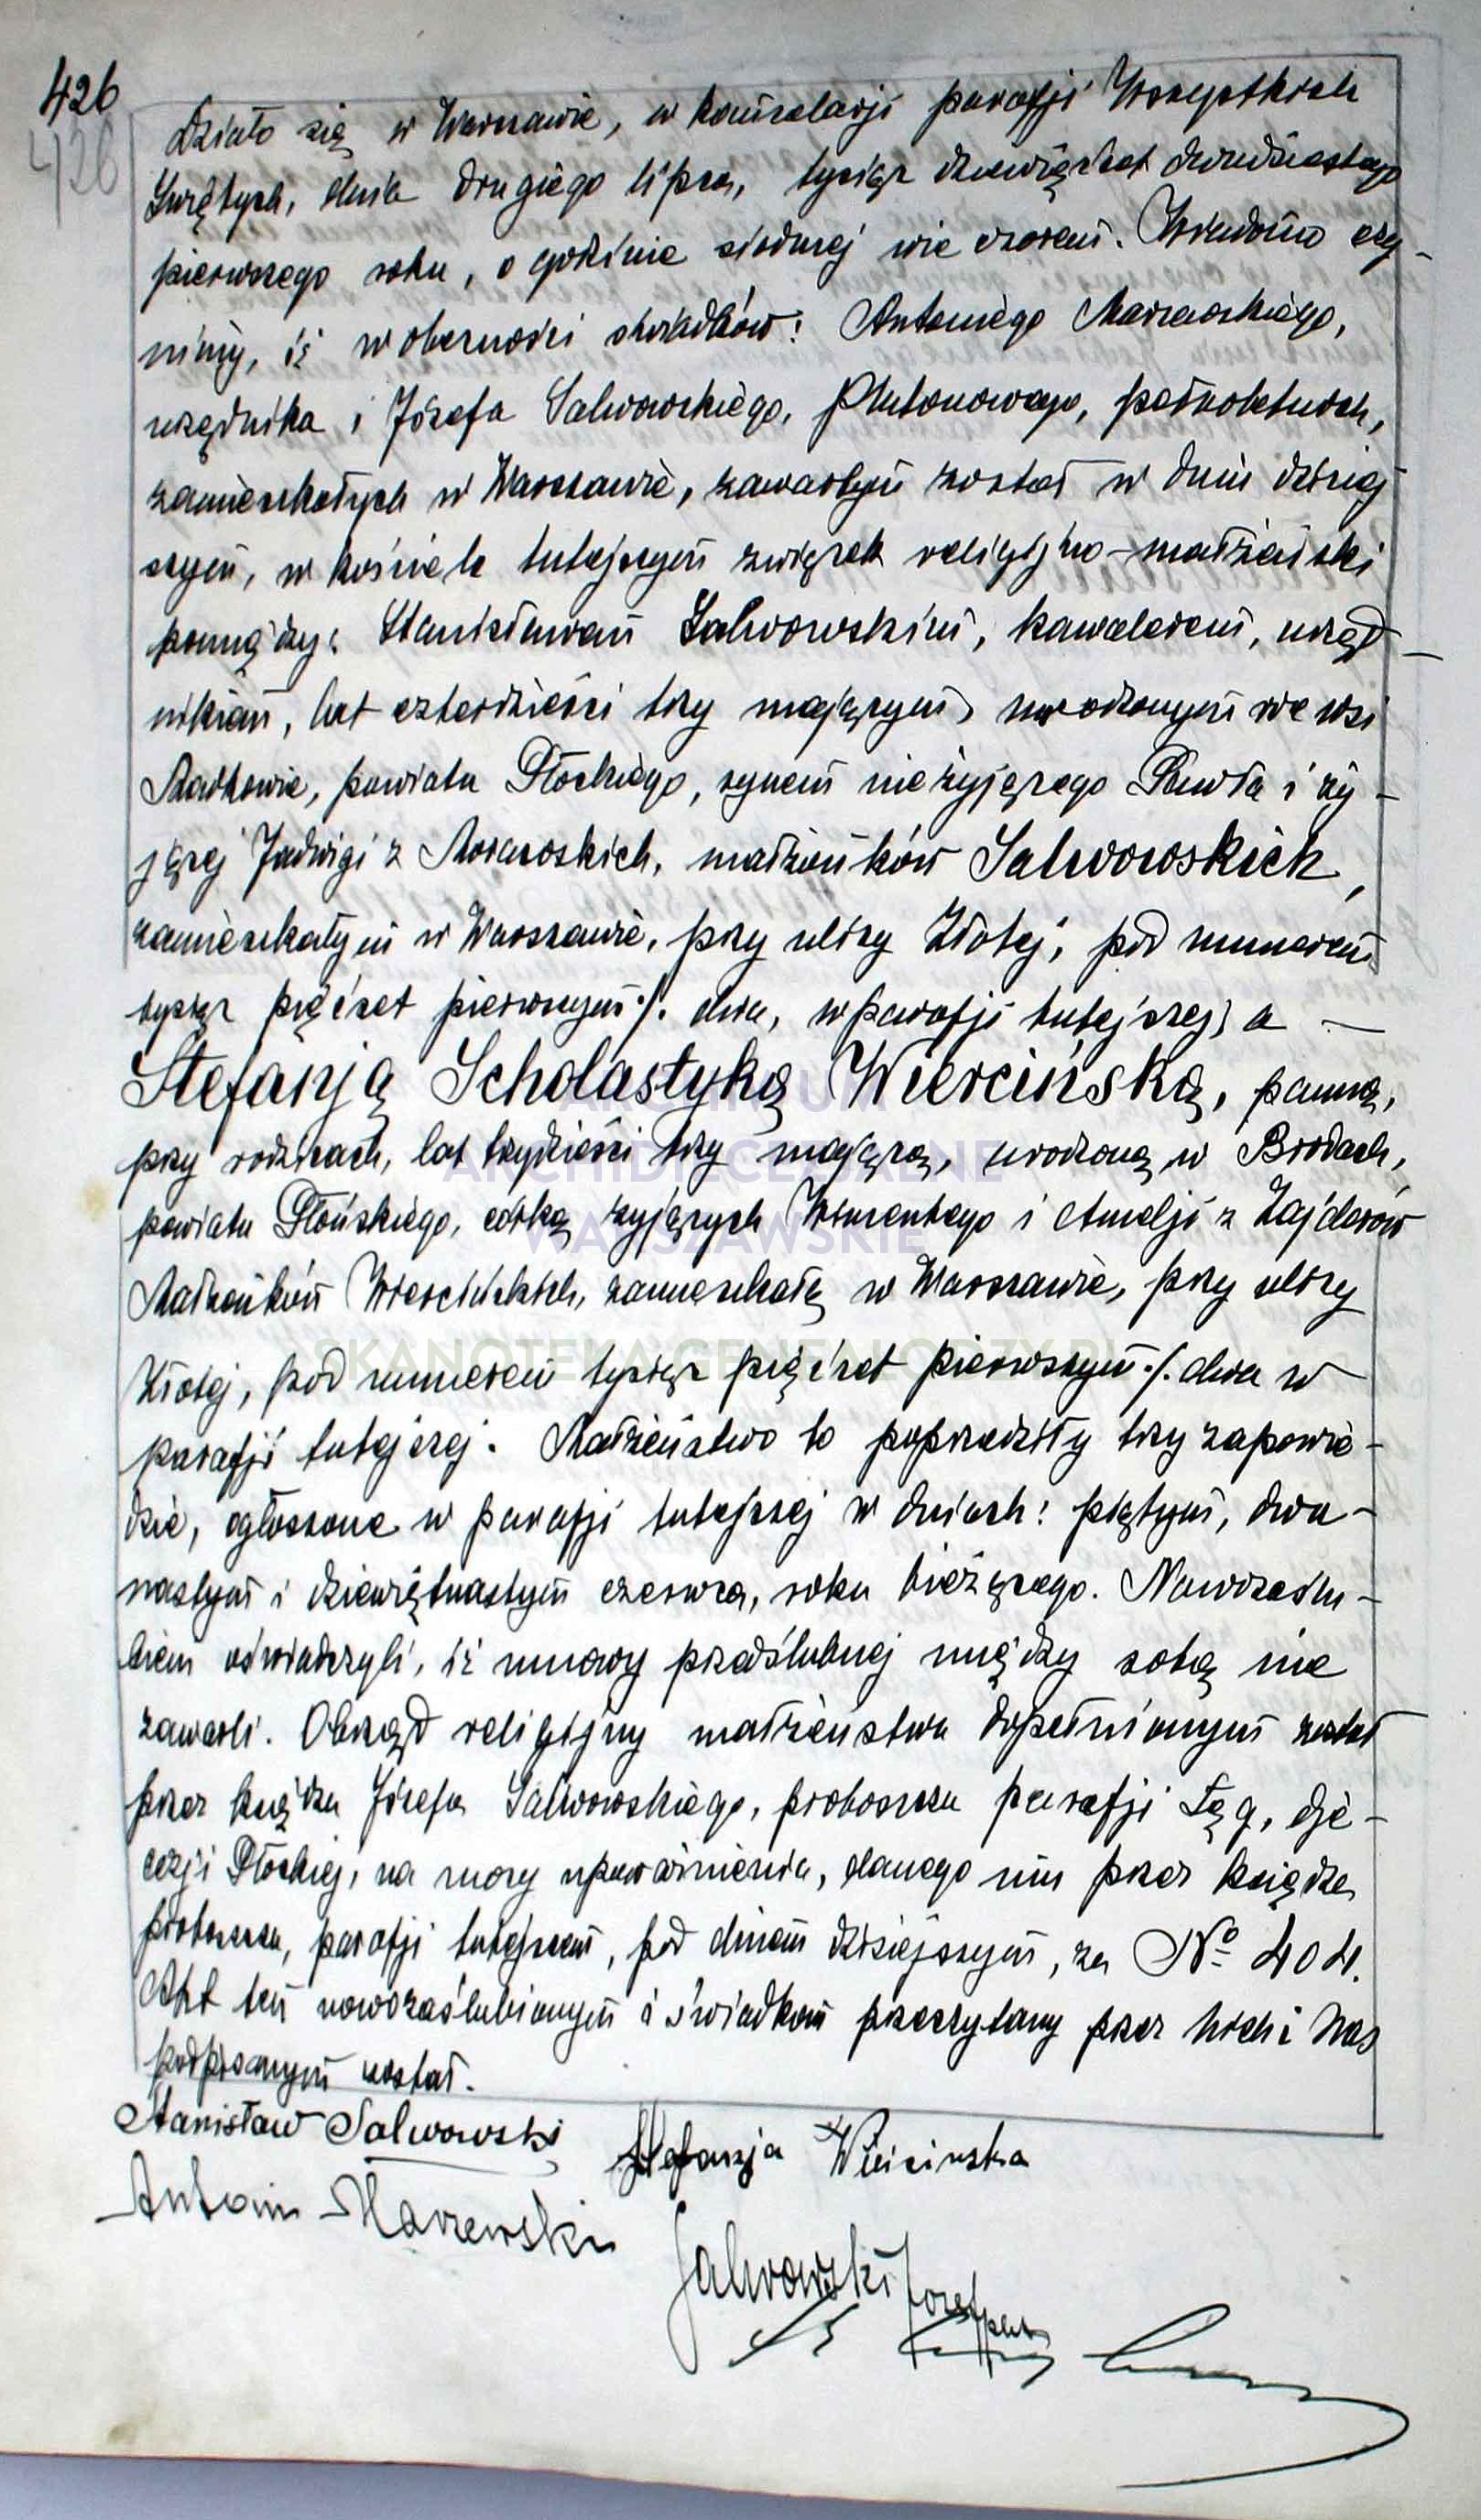 426
426
Działo się w Warszawie, w kancelarji parafji Wszystkich
Świętych, dnia drugiego lipca, tysiąc dziewięćset dwudziestego
pierwszego roku, o godzinie siódmej wieczorem. Wiadomo czy-
nimy, iż w obecności świadków: Antoniego Marzewskiego,
urzędnika i Józefa Salwowskiego, Plutonowego, pełnoletnich,
zamieszkałych w Warszawie, zawartym został w dniu dzisiej
szym, w kościele tutejszym związek religijno-małżeński
pomiędzy: Stanisławem Salwowskim, kawalerem, urzęd-
nikiem, lat czterdzieści trzy mającym, urodzonym we wsi
powiatu Płockiego, synem nieżyjącego Pawła i ży-
jącej Jadwigi z małżonków Salwowskich,
zamieszkałym w Warszawie, przy ulicy Złotej, pod numerem
tysiąc pięćset pierwszym ./. dwa, w parafji tutejszej; a —
Stefanją Scholastyką Wiercińską, panną,
przy rodzicach, lat trzydzieści trzy mającą, urodzoną w Brodach,
powiatu Płońskiego, córką żyjących Wincentego i Amelji z Zajdlerów
Małżonków Wiercińskich, zamieszkałą w Warszawie, przy ulicy
Złotej, pod numerem tysiąc pięćset pierwszym ./. dwa w
parafji tutejszej. Małżeństwo to poprzedziły trzy zapowie-
dzie, ogłoszone w parafji tutejszej w dniach: piątym, dwu-
nastym i dziewiętnastym czerwca, roku bieżącego. Nowozaślu-
bieni oświadczyli, iż umowy przedślubnej między sobą nie
zawarli. Obrzęd religijny małżeństwa dopełnionym został
przez księdza Józefa Salwowskiego, proboszcza parafji Łęg, dje-
cezji Płockiej, na mocy upoważnienia, danego mu przez księdza
proboszcza, parafji tutejszej, pod dniem dzisiejszym, za № 404.
Akt ten nowozaślubionym i świadkom przeczytany przez nich i Nas
podpisanym został.
Stanisław Salwowski Stefanja Wiercinska
Antoni Marzewski
Salwowski Józef plut